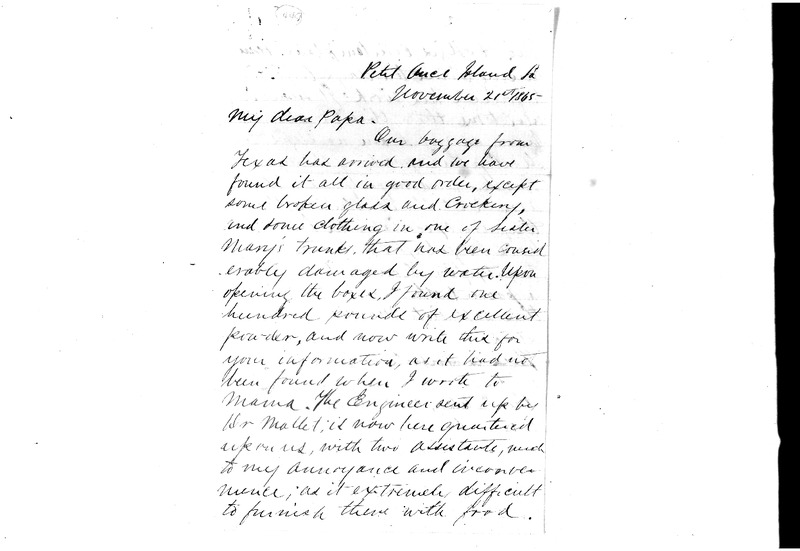 Petit Ance Island La
November 21st 1865-
My dear Papa.
Our baggage from
Texas has arrived and we have
found it all in good order, except
some broken glass and Crockery,
and some clothing in one of sister
Mary's trunks, that has been consid
erably damaged by water. Upon
opening the boxes, I found one
hundred pounds of excellent
powder, and now write this for
your information, as it had not
been found when I wrote to
Mama. The Engineer sent up by
Dr Mallet, is now here quartered
upon us, with two assistants, much
to my annoyance and inconve
nience; as it extremely difficult
to furnish them with food.